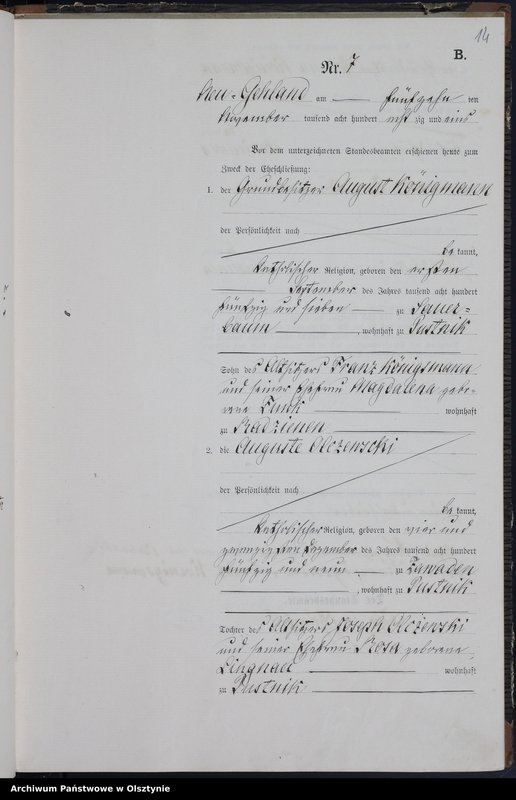 14
B.
Nr. 7
Neu-Gehland am fünfzehn ten
November tausend acht hundert acht zig und eins
Vor dem unterzeichneten Standesbeamten erschienen heute zum
Zweck der Eheschließung:
1. der Grundbesitzer August Königmann
der Persönlichkeit nach
be kannt,
katholischer Religion, geboren den ersten
September des Jahres tausend acht hundert
fünfzig und sieben zu Sauer-
baum, wohnhaft zu Pustnik
Sohn des Altsitzers Franz Königsmann
und seiner Ehefrau Magdalena gebo-
rene wohnhaft
zu Radzienen
2. die Auguste Olczewski
der Persönlichkeit nach
be kannt,
katholischer Religion, geboren den vier und
zwanzigsten Dezember des Jahres tausend acht hundert
fünfzig und neun zu Zawaden
, wohnhaft zu Pustnik
Tochter des Altsitzers Joseph Olczewski
und seiner Ehefrau Rosa geborene
Lingnau wohnhaft
zu Pustnik
Archiwum Państwowe w Olsztynie